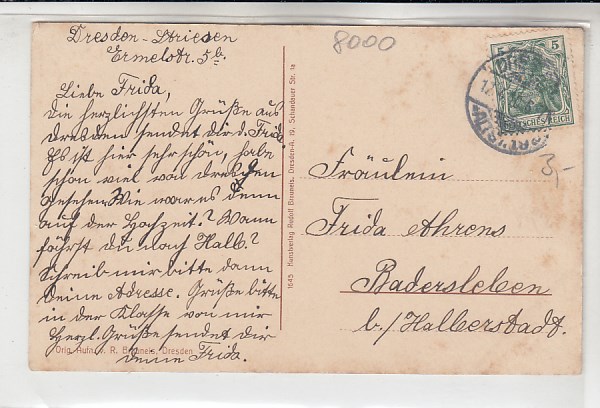 Dresden-Striesen
Ermelstr. 5b.
Liebe Frida,
die herzlichsten Grüße aus
Dresden sendet dir d. Frida.
Es ist hier sehr schön, habe
schon viel von Dresden
gesehen. Wie war es denn
auf der Hochzeit? Wann
fährst du nach Halb.?
Schreib mir bitte dann
deine Adresse. Grüße bitte
in der Klasse von mir
Herzl. Grüße sendet dir
deine Frida.
Orig. Aufn. v. R. Brauneis, Dresden
1645 Kunstverlag Rudolf Brauneis, Dresden-A. 19, Schandauer Str. 1a
8000
5 5
DEUTSCHES REICH
3,-
Fräulein
Frida Ahrens
Badersleben
b./Halberstadt.